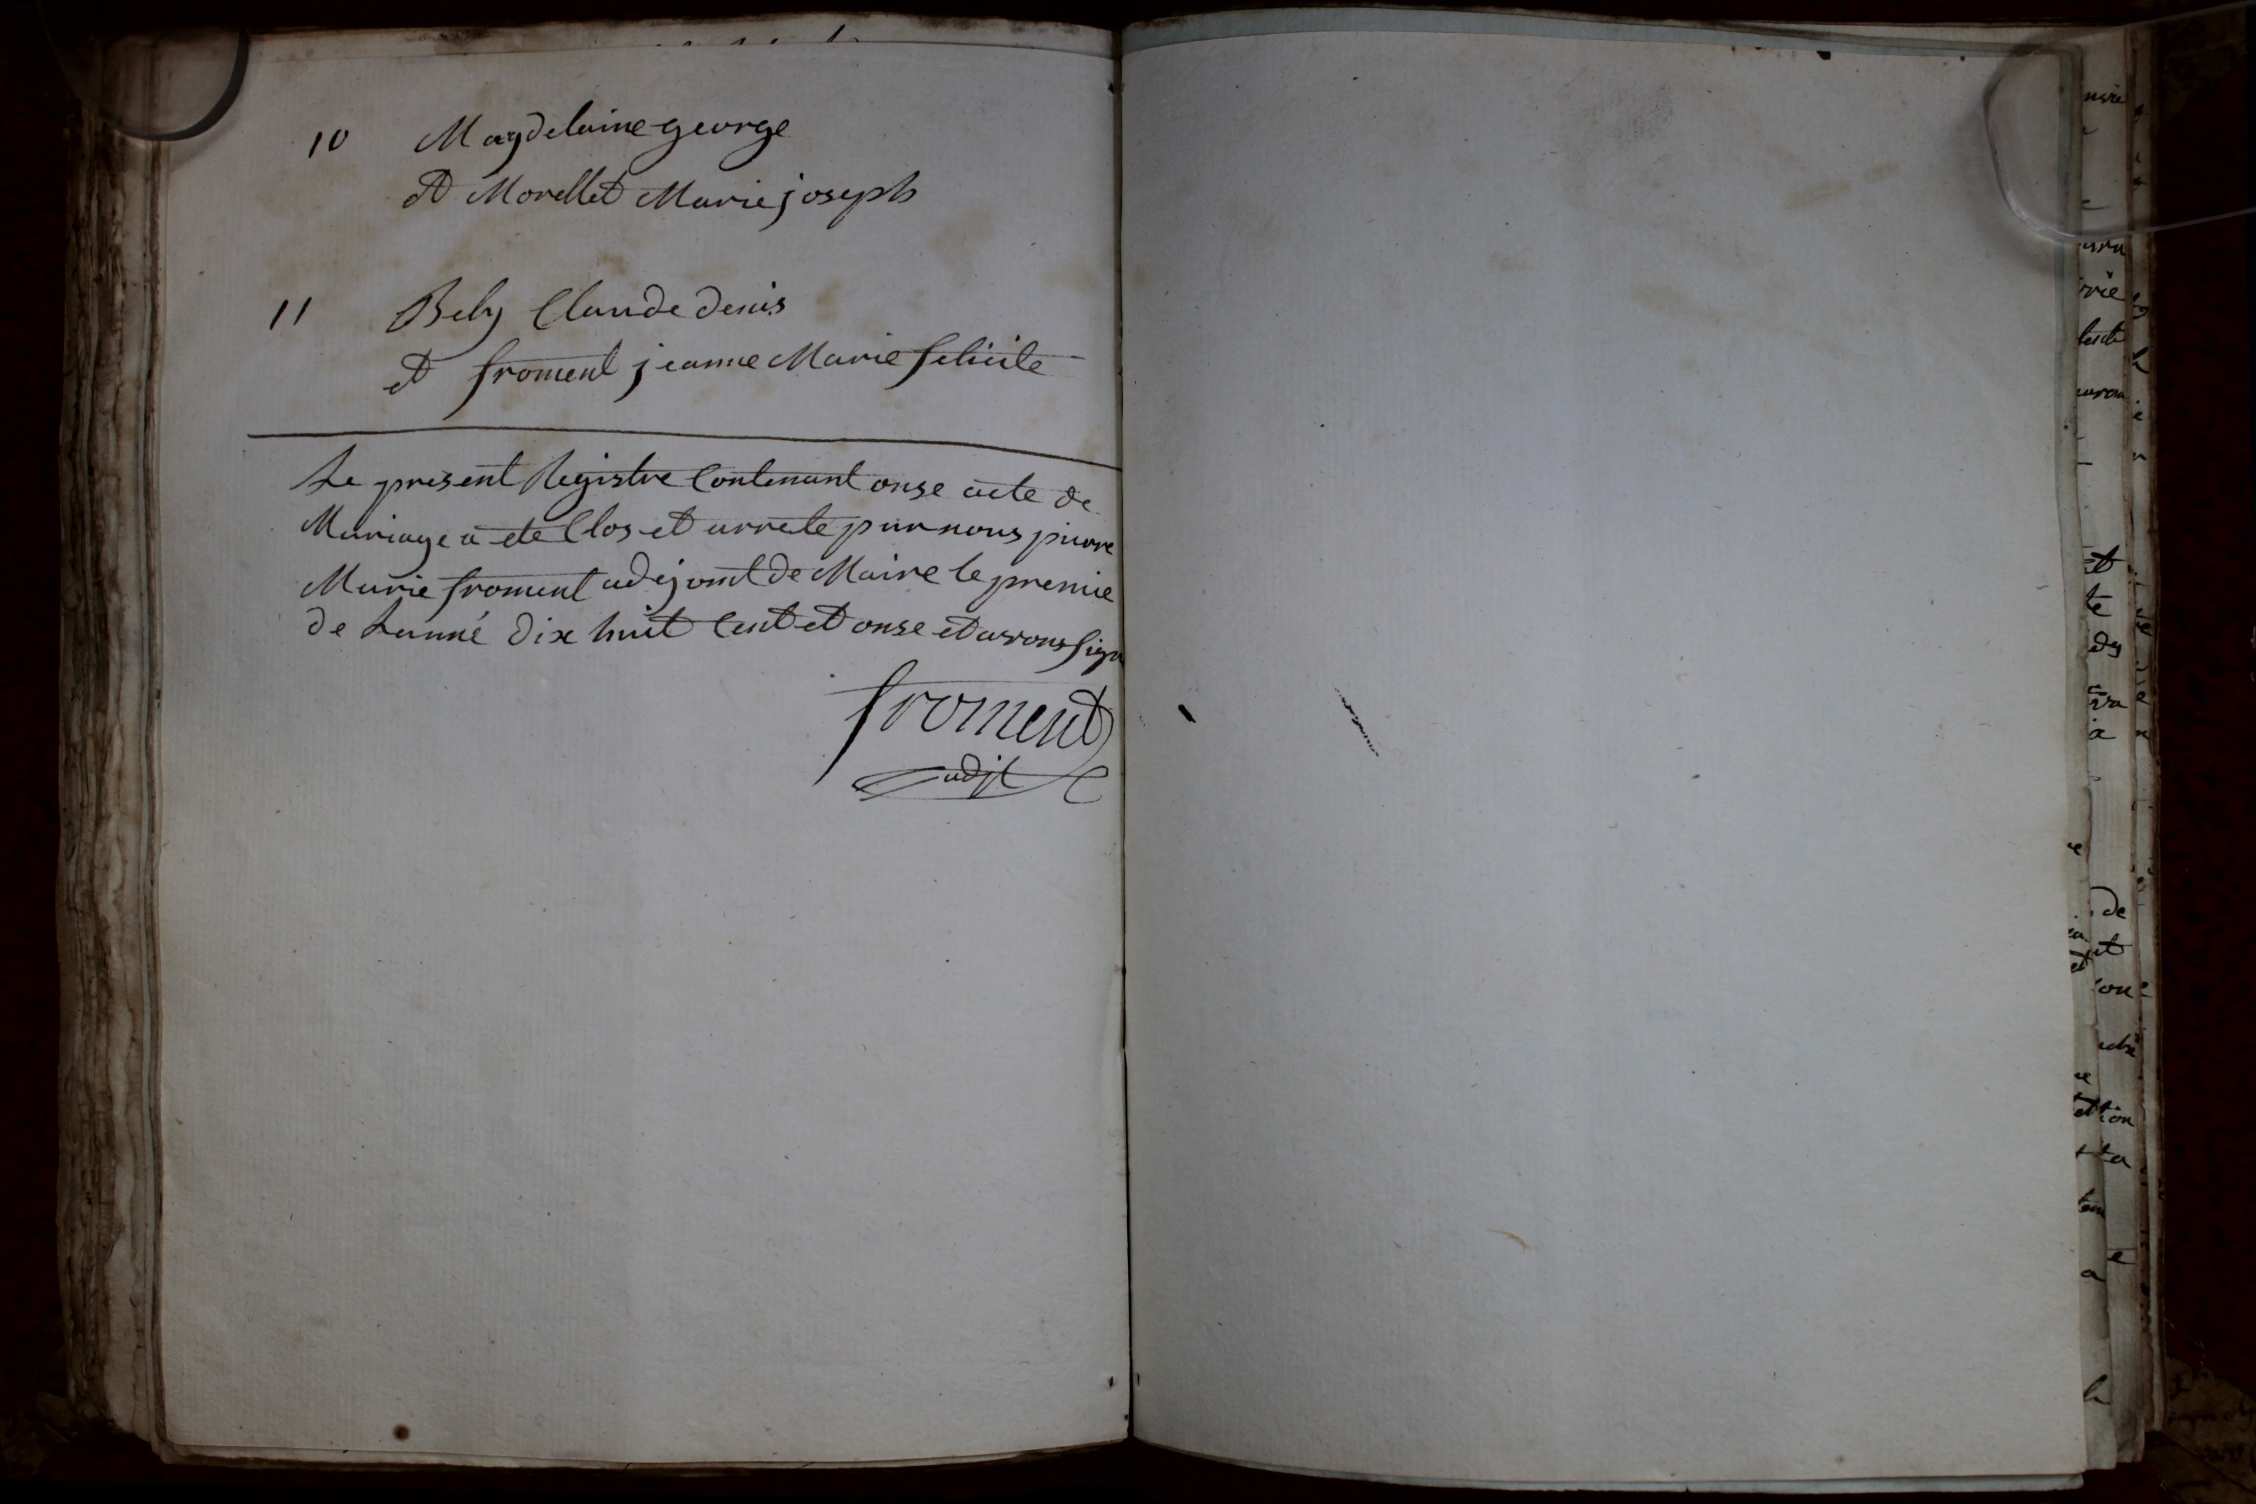 10 Magdelaine george
et Morellet Marie joseph
11 Bely Claude denis
et froment jeanne Marie felicite
Le present Registre Contenant onse acte de
Mariage a ete Clos et arrete par nous piere
Marie froment adejoint de Maire le premie
de Lanné dix huit Cent et onse et avons sign
froment
adjt